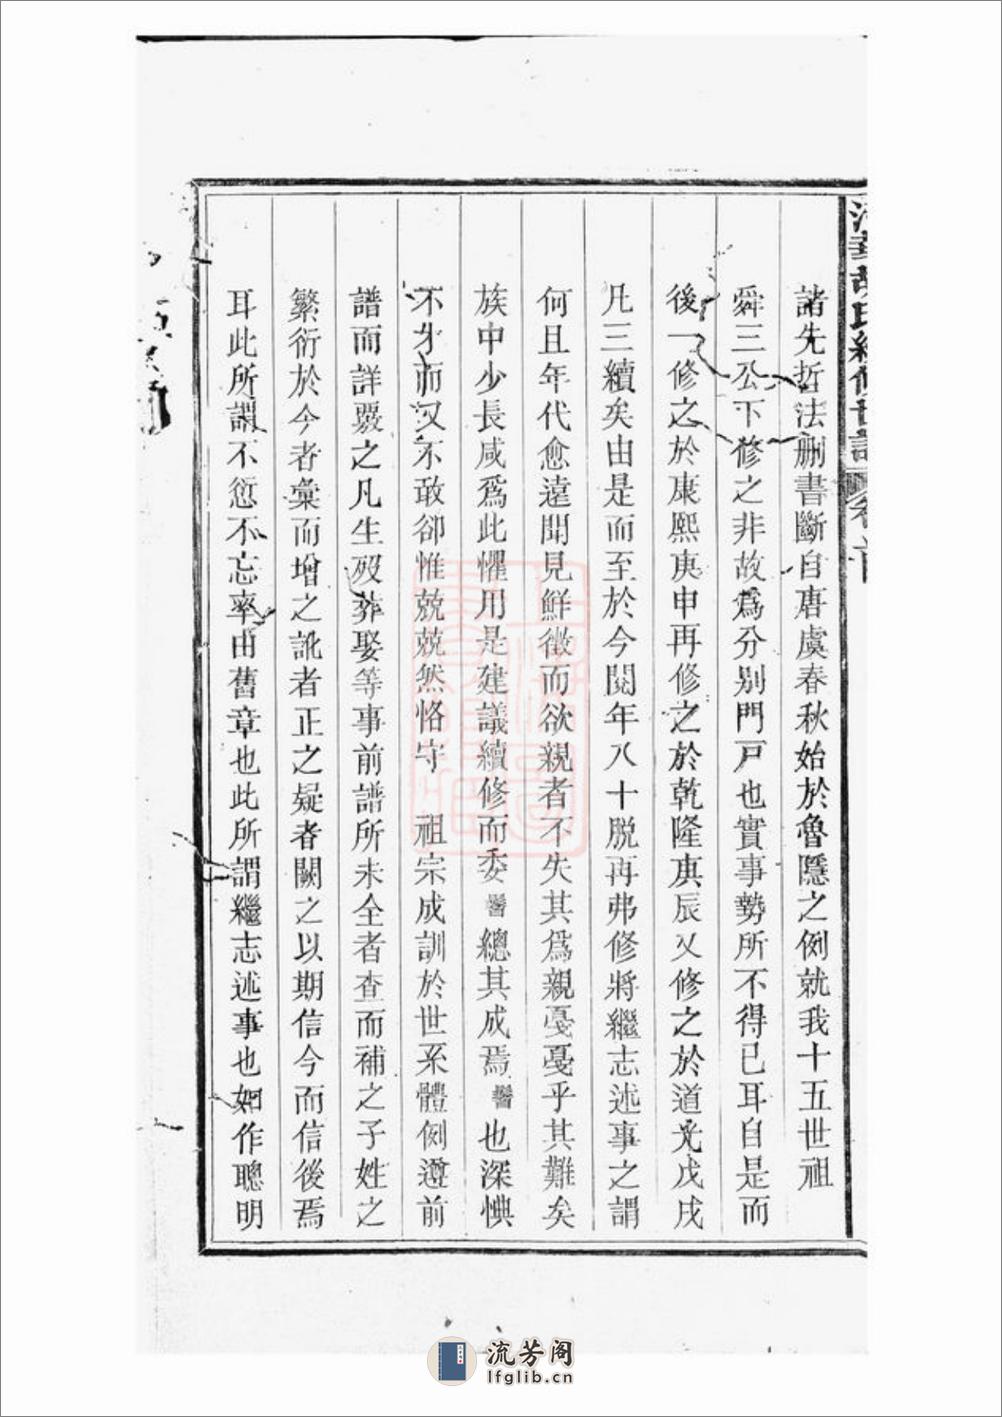 諸先哲法刪書斷自唐虞春秋始於魯隱之例就我十五世祖
舜三公下修之非故爲分别門戸也實事勢所不得已耳自是而
後一修之於康熙庚申再修之於乾隆庚辰又修之於道光戊戌
凡三續矣由是而至於今閱年八十脱再弗修將繼志述事之謂
何且年代愈遠聞見鮮徵而欲親者不失其爲親戞戞乎其難矣
族中少長咸爲此懼用是建議續修而委 總其成焉 也深愧
不才而又不敢卻惟兢兢然恪守 祖宗成訓於世系體例遵前
譜而詳覈之凡生歿葬娶等事前譜所未全者查而補之子姓之
繁衍於今者彙而增之訛者正之疑者闕之以期信今而信後焉
耳此所謂不愆不忘率由舊章也此所謂繼志述事也如作聰明
胡氏續修世譜
流芳阁
lfglib.cn